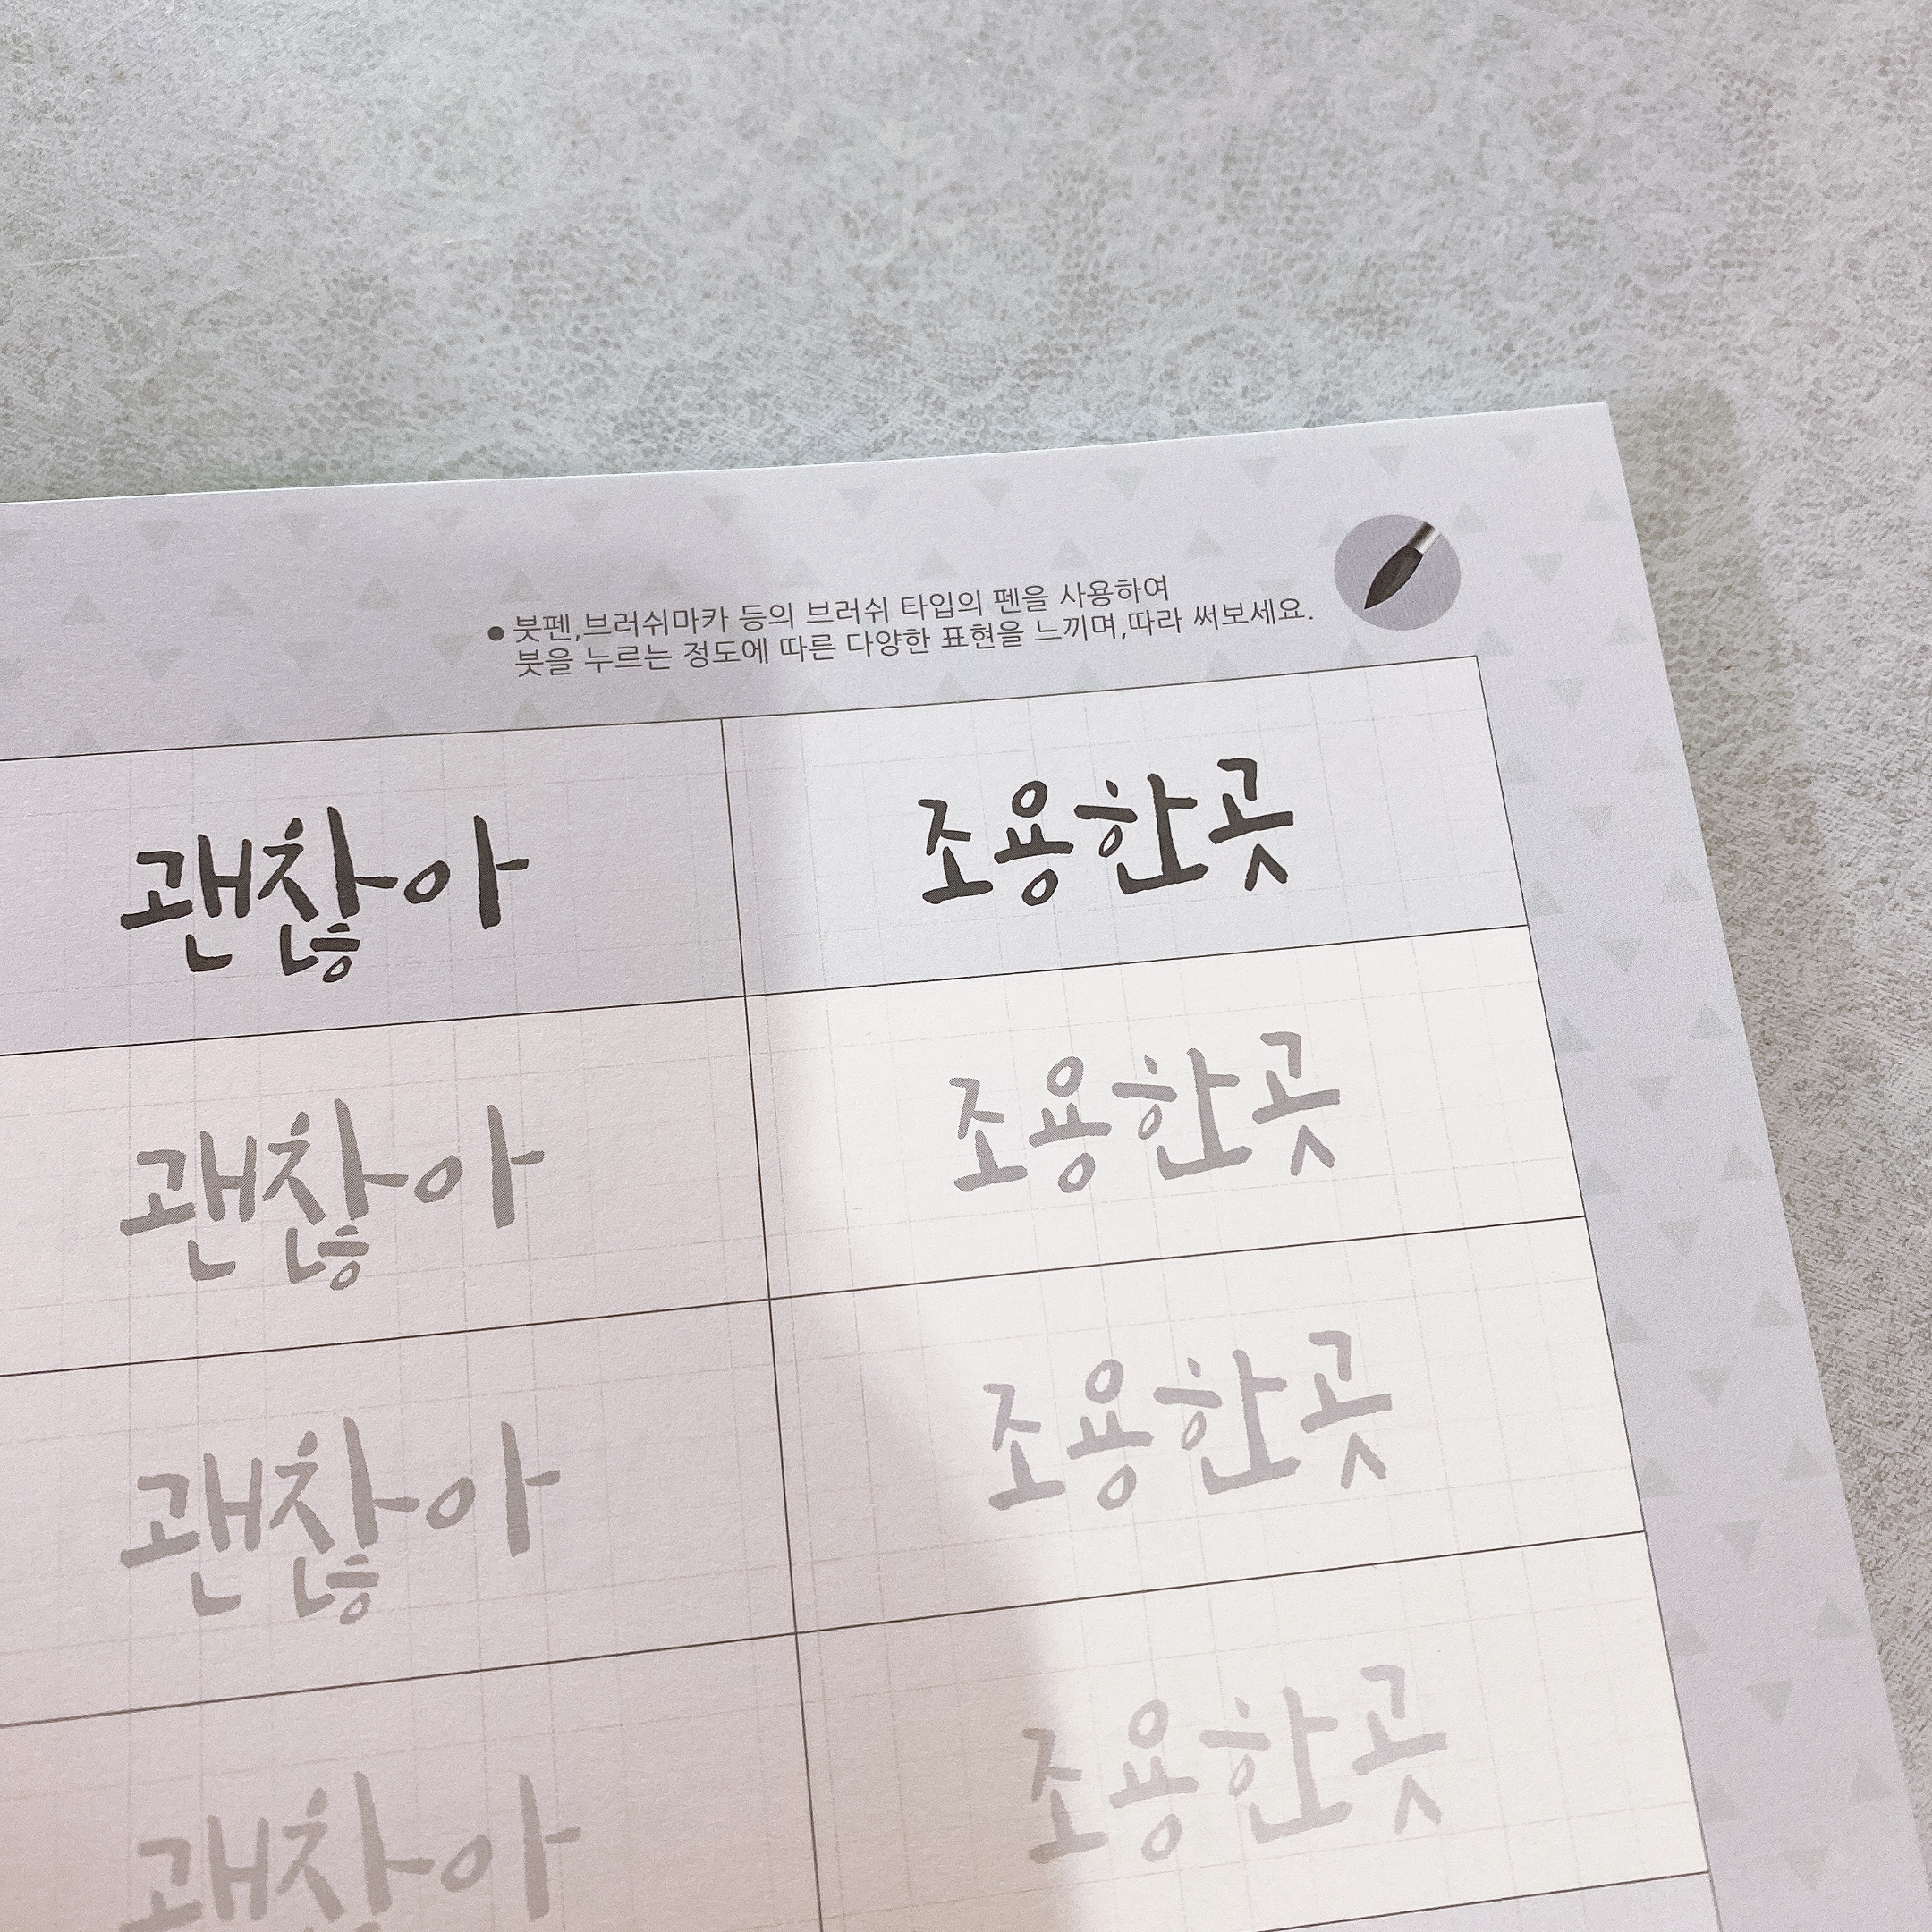 ● 붓펜,브러쉬마카 등의 브러쉬 타입의 펜을 사용하여
붓을 누르는 정도에 따른 다양한 표현을 느끼며,따라 써보세요.
괜찮아 조용한곳
괜찮아 조용한곳
괜찮아 조용한곳
괜찮아 조용한곳